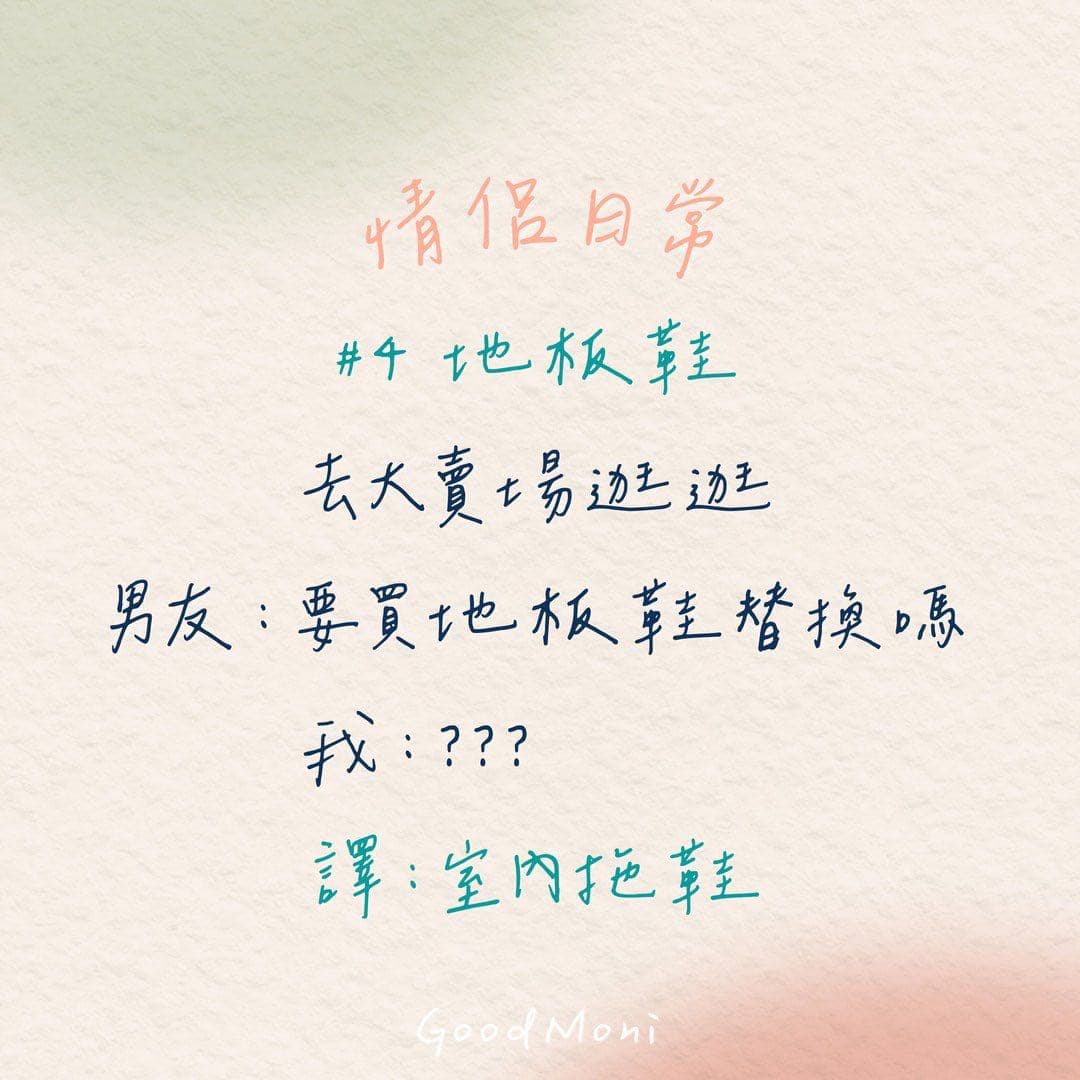 情侶日常
#4 地板鞋
去大賣場逛逛
男友：要買地板鞋替換嗎
我：???
譯：室內拖鞋
GoodMoni